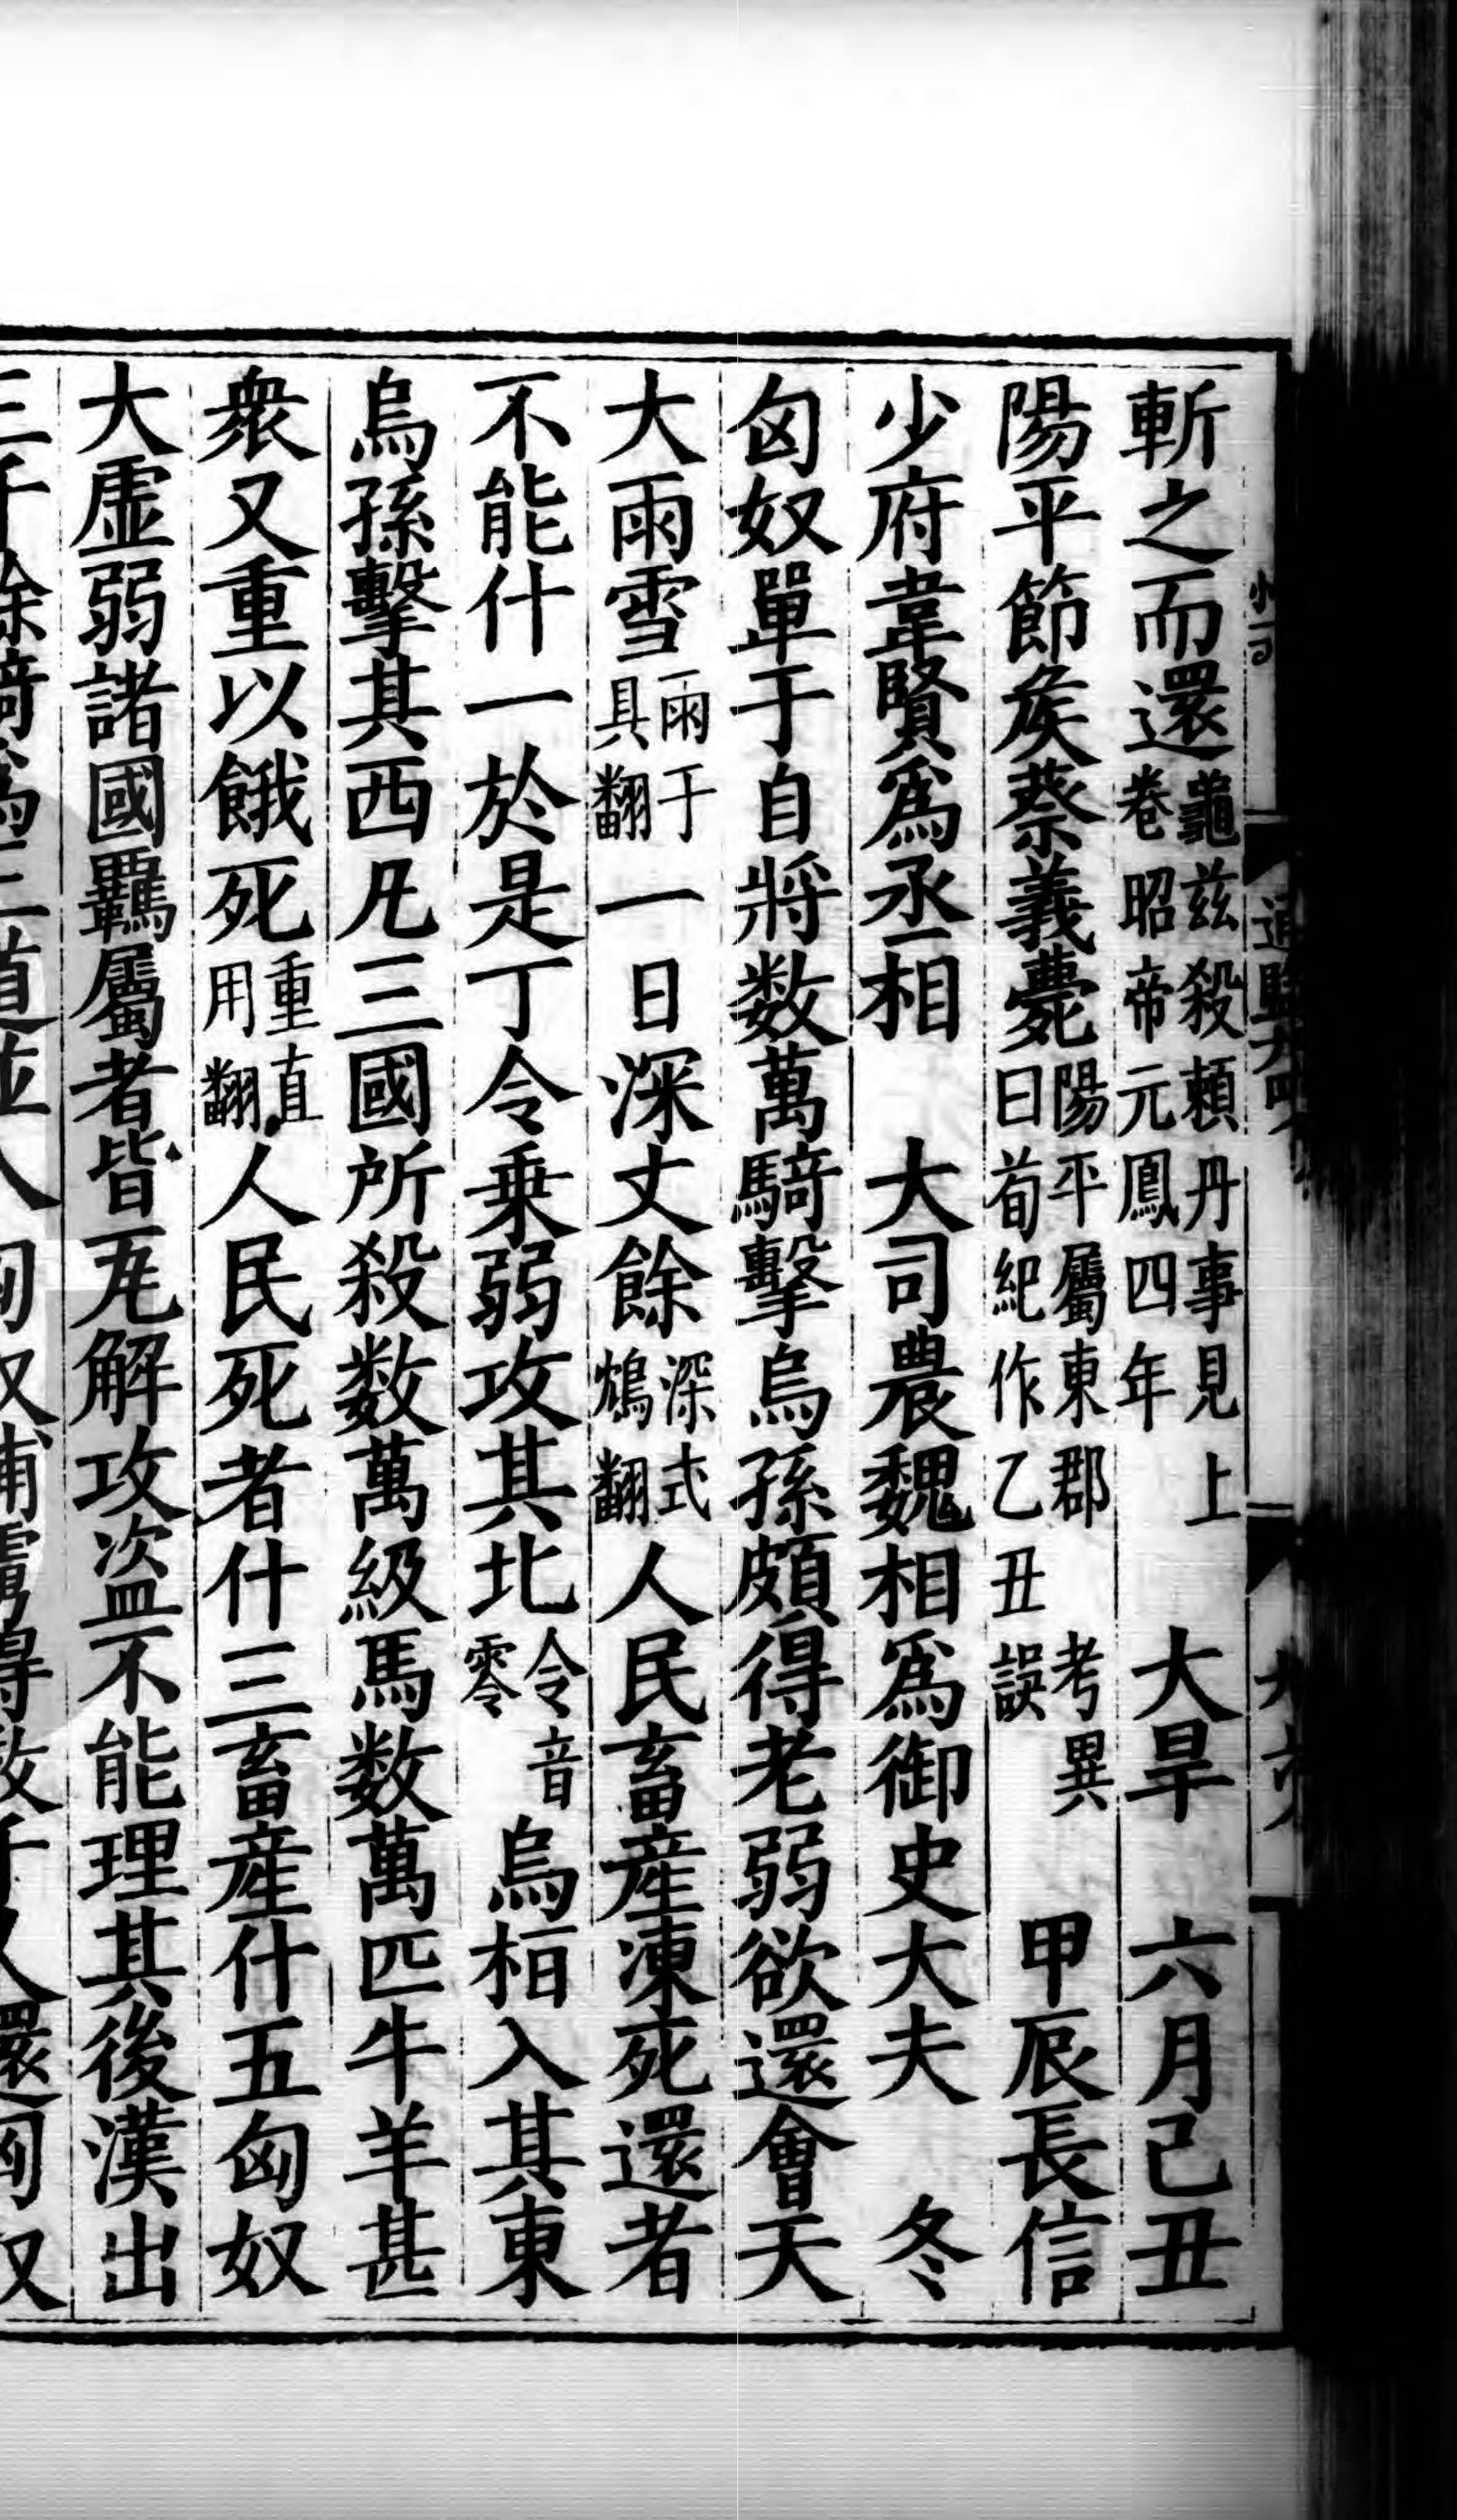 斬之而還龜兹殺賴丹事見上卷昭帝元鳳四年 大旱 六月己丑
陽平節矦蔡義薨陽平屬東郡考異曰荀紀作乙丑誤 甲辰長信
少府韋賢爲丞相 大司農魏相爲御史大夫 冬
匈奴單于自將数萬騎擊烏孫頗得老弱欲還會天
大雨雪雨于具翻一日深丈餘深式鴆翻人民畜產凍死還者
不能什一於是丁令乗弱攻其北令音零烏桓入其東
烏孫擊其西凡三國所殺数萬級馬数萬匹牛羊甚
衆又重以餓死重直用翻人民死者什三畜產什五匈奴
大虛弱諸國羈屬者皆瓦解攻盜不能理其後漢出